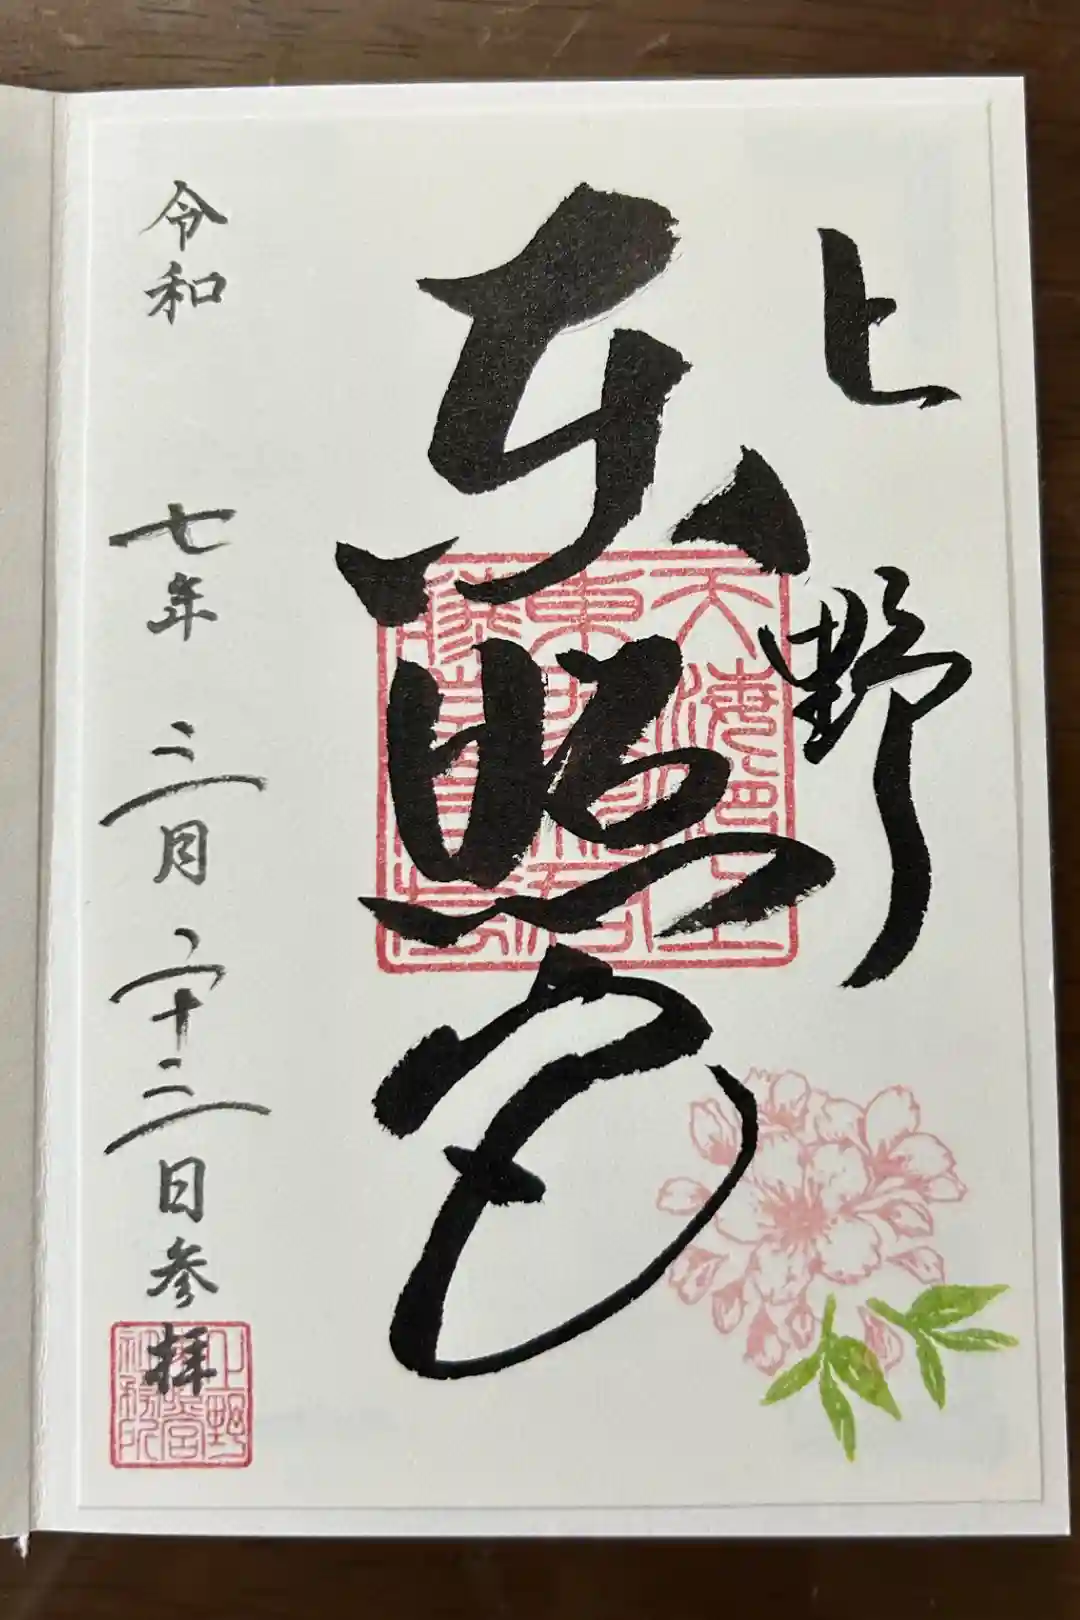 上野
東照宮
令和七年三月二十三日参拝
上野
東照宮
社務所